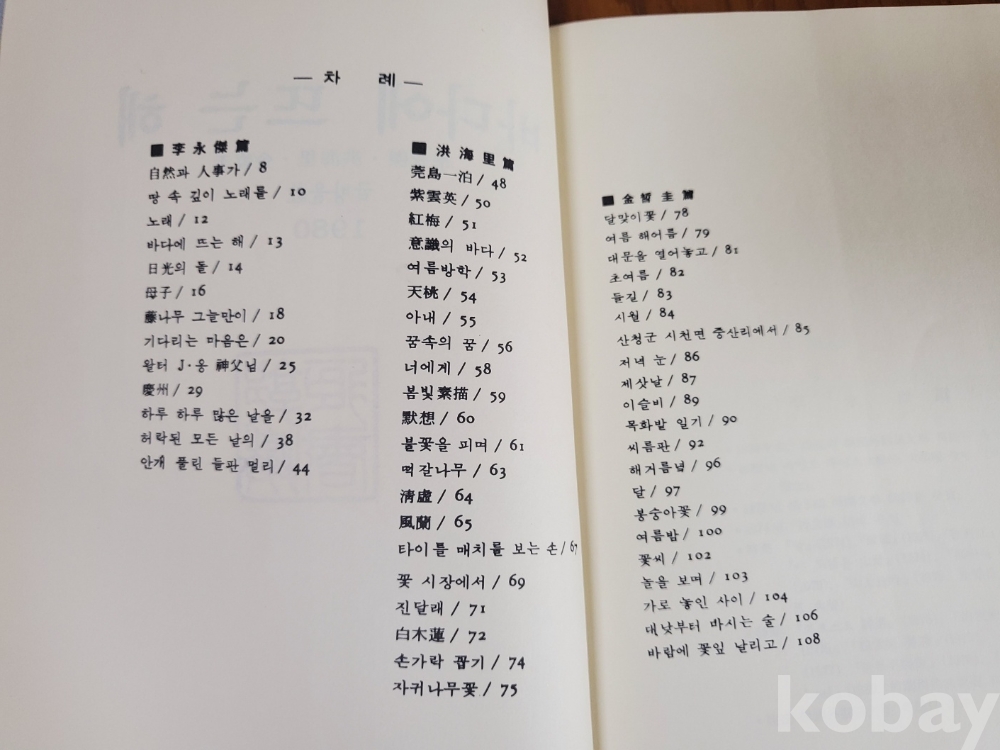 — 차 례 —
■ 李永傑篇
自然과 人事가 / 8
땅 속 깊이 노래를 / 10
노래 / 12
바다에 뜨는 해 / 13
日光의 돌 / 14
母子 / 16
藤나무 그늘만이 / 18
기다리는 마음은 / 20
왈터 J·옹 神父님 / 25
慶州 / 29
하루 하루 많은 날을 / 32
허락된 모든 날의 / 38
안개 풀린 들판 멀리 / 44
■ 洪海里篇
莞島一泊 / 48
紫雲英 / 50
紅梅 / 51
意識의 바다 / 52
여름방학 / 53
天桃 / 54
아내 / 55
꿈속의 꿈 / 56
너에게 / 58
봄빛素描 / 59
默想 / 60
불꽃을 피며 / 61
떡갈나무 / 63
淸虛 / 64
風蘭 / 65
타이틀 매치를 보는 손 / 67
꽃 시장에서 / 69
진달래 / 71
白木蓮 / 72
손가락 꼽기 / 74
자귀나무꽃 / 75
■ 金晳圭篇
달맞이꽃 / 78
여름 해어름 / 79
대문을 열어놓고 / 81
초여름 / 82
들길 / 83
시월 / 84
산청군 시천면 중산리에서 / 85
저녁 눈 / 86
제삿날 / 87
이슬비 / 89
목화밭 일기 / 90
씨름판 / 92
해거름녘 / 96
달 / 97
봉숭아꽃 / 99
여름밤 / 100
꽃씨 / 102
놀을 보며 / 103
가로 놓인 사이 / 104
대낮부터 마시는 술 / 106
바람에 꽃잎 날리고 / 108
바다에 뜨는 해
1980
kobay